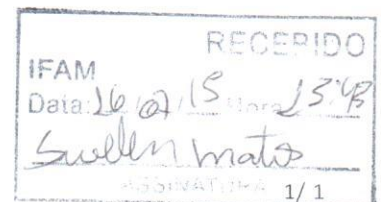 RECEBIDO
IFAM
Data: 26/02/15 Hora 15:48
Suelen Matos
ASSINATURA 1/1